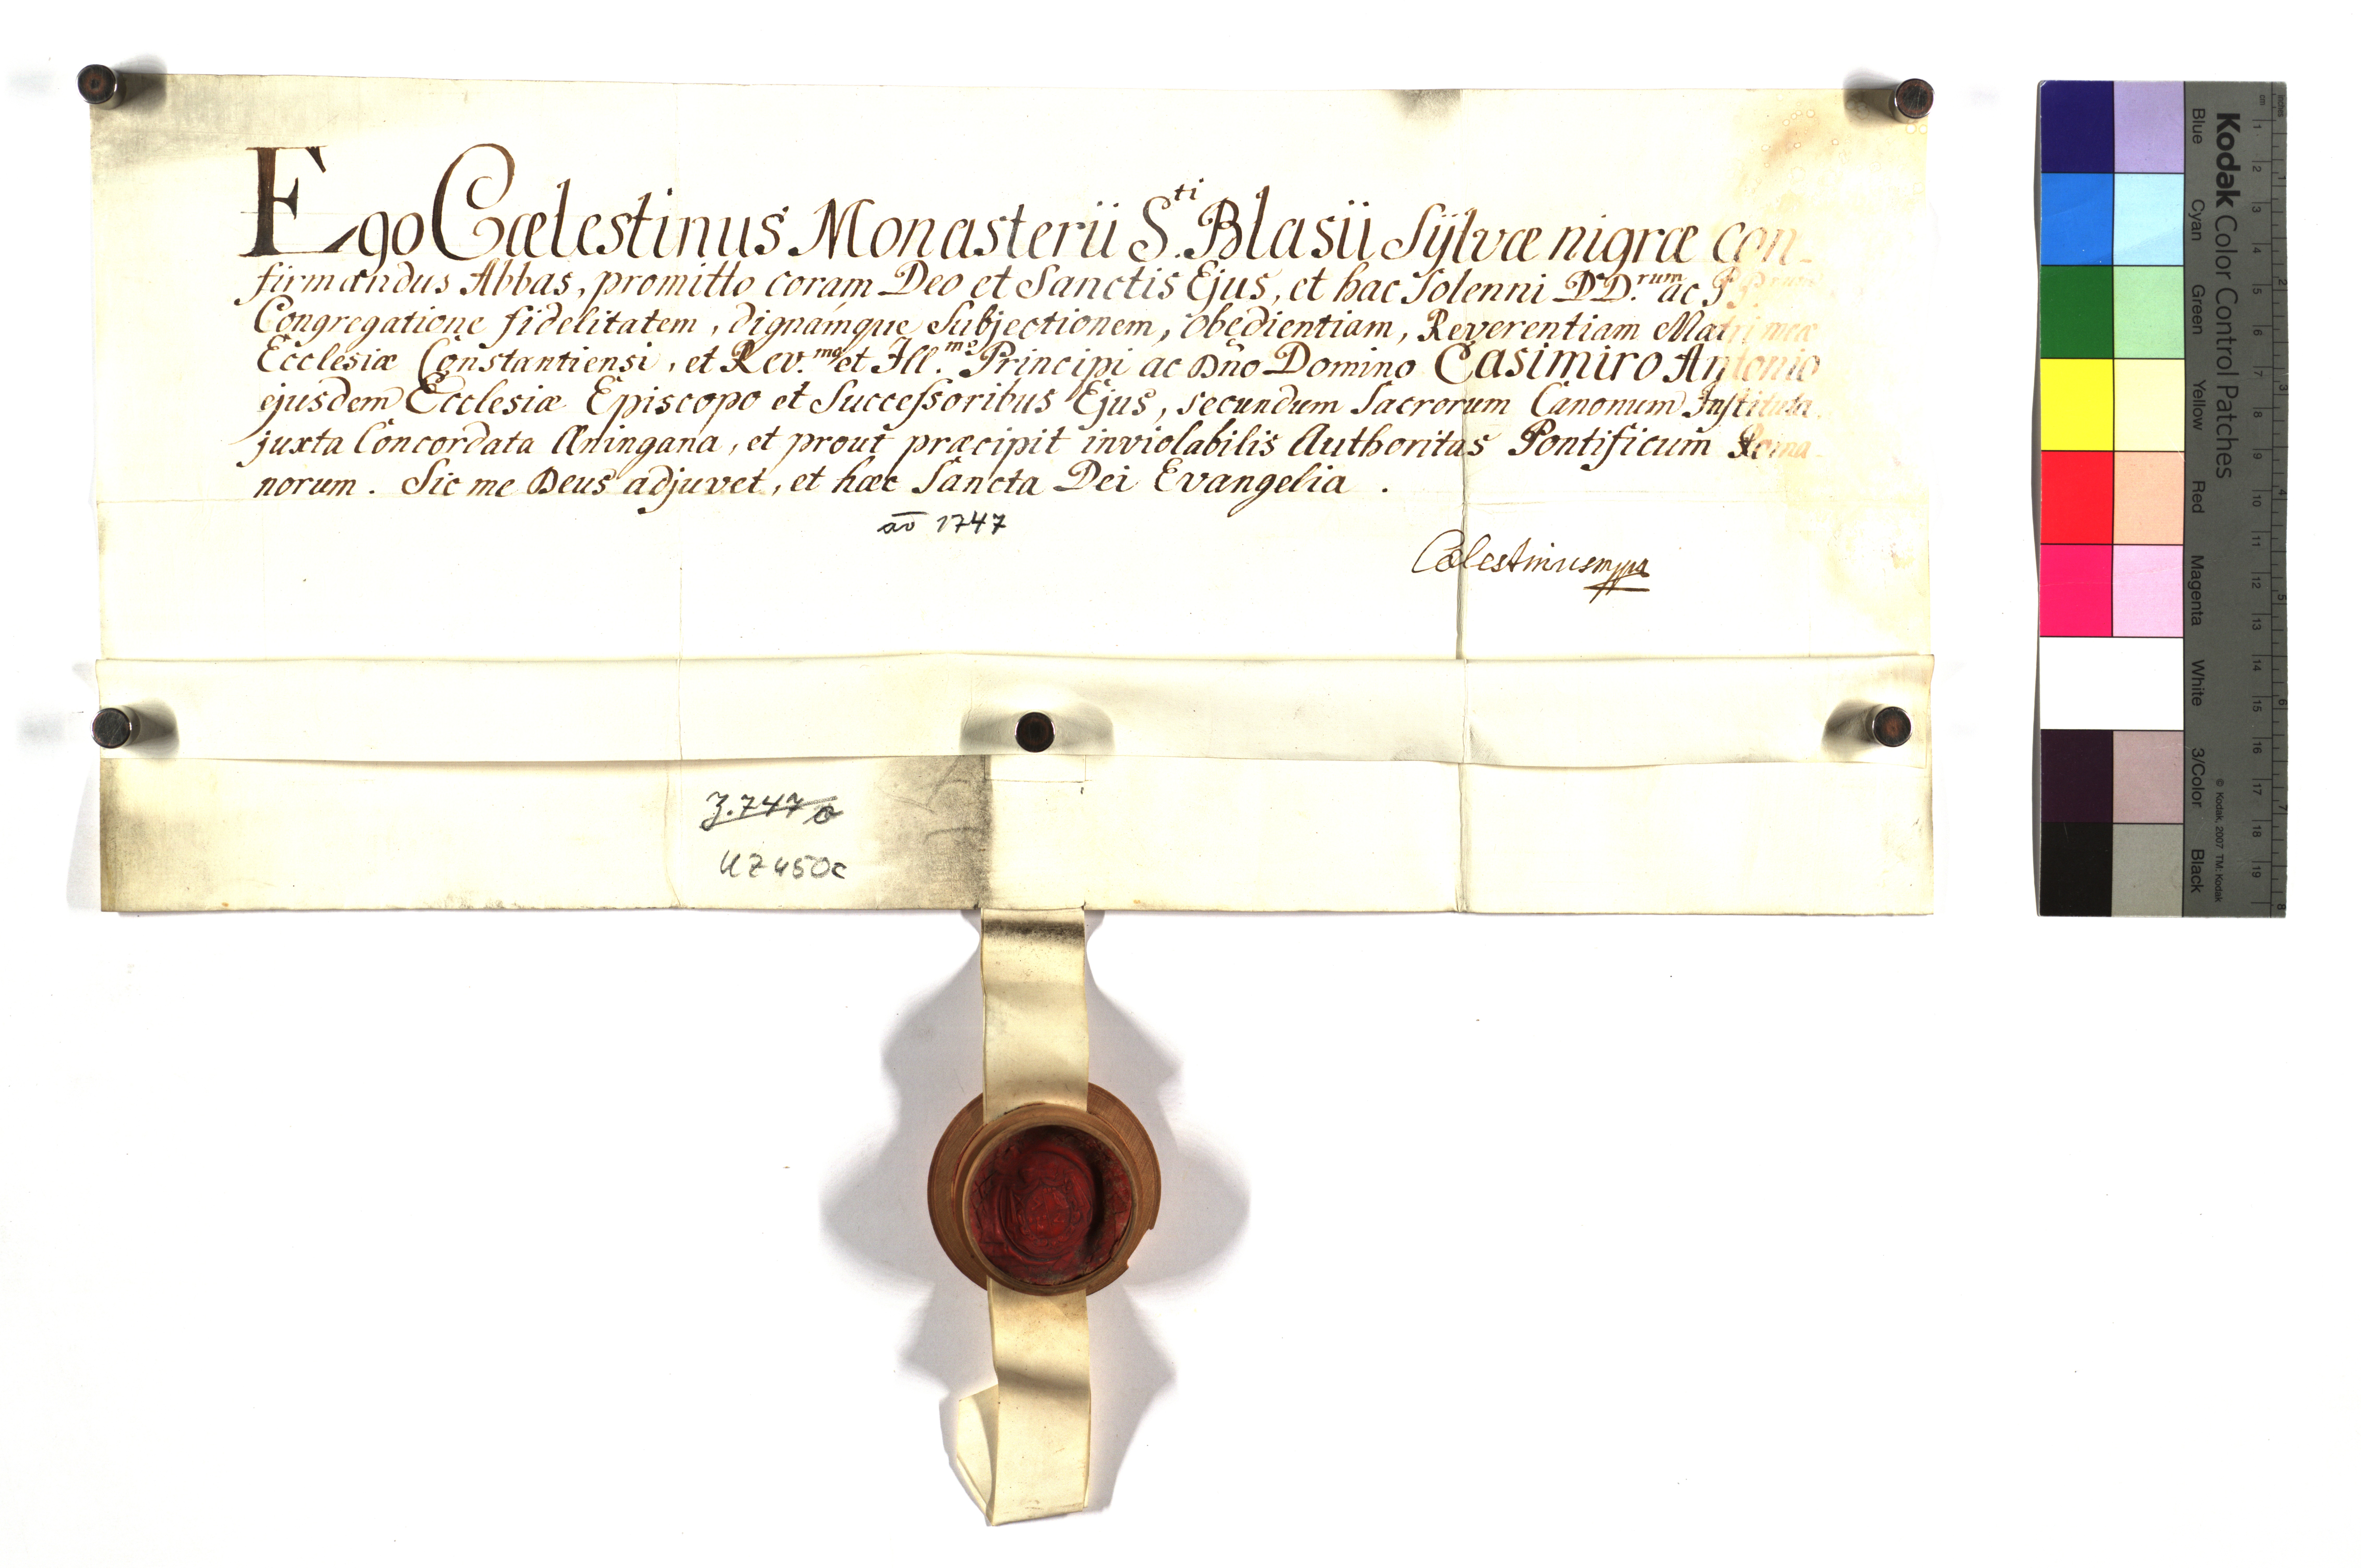 Ego Cœlestinus Monasterii S.ti Blasii Sÿlvæ nigræ con-
firmandus Abbas, promitto coram Deo et Sanctis Ejus, et hac Solenni DD.rum ac
Congregatione fidelitatem, dignamque Subjectionem, obedientiam, Reverentiam Matri meæ
Ecclesiæ Constantiensi, et Rev.mo et Ill.mo Principi ac Dño Domino Casimiro Antonio
ejusdem Ecclesiæ Episcopo et Successoribus Ejus, secundum Sacrorum Canonum Instituta.
juxta Concordata Æningana, et prout præcipit inviolabilis Authoritas Pontificum Roma-
norum. Sic me Deus adjuvet, et hæc Sancta Dei Evangelia.
aō 1747
Cœlestinus mppa
3.747a
UZ450c
Kodak Color Control Patches
© Kodak, 2007 TM: Kodak
Blue Cyan Green Yellow Red Magenta White 3/Color Black
cm 1 2 3 4 5 6 7 8 9 10 11 12 13 14 15 16 17 18 19
inches 1 2 3 4 5 6 7 8